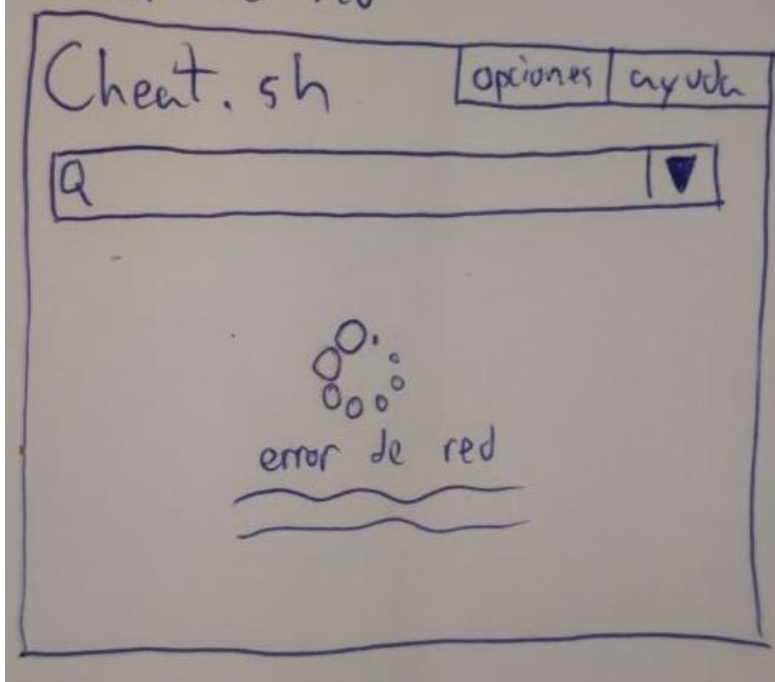 Cheat.sh
opciones ayuda
error de red